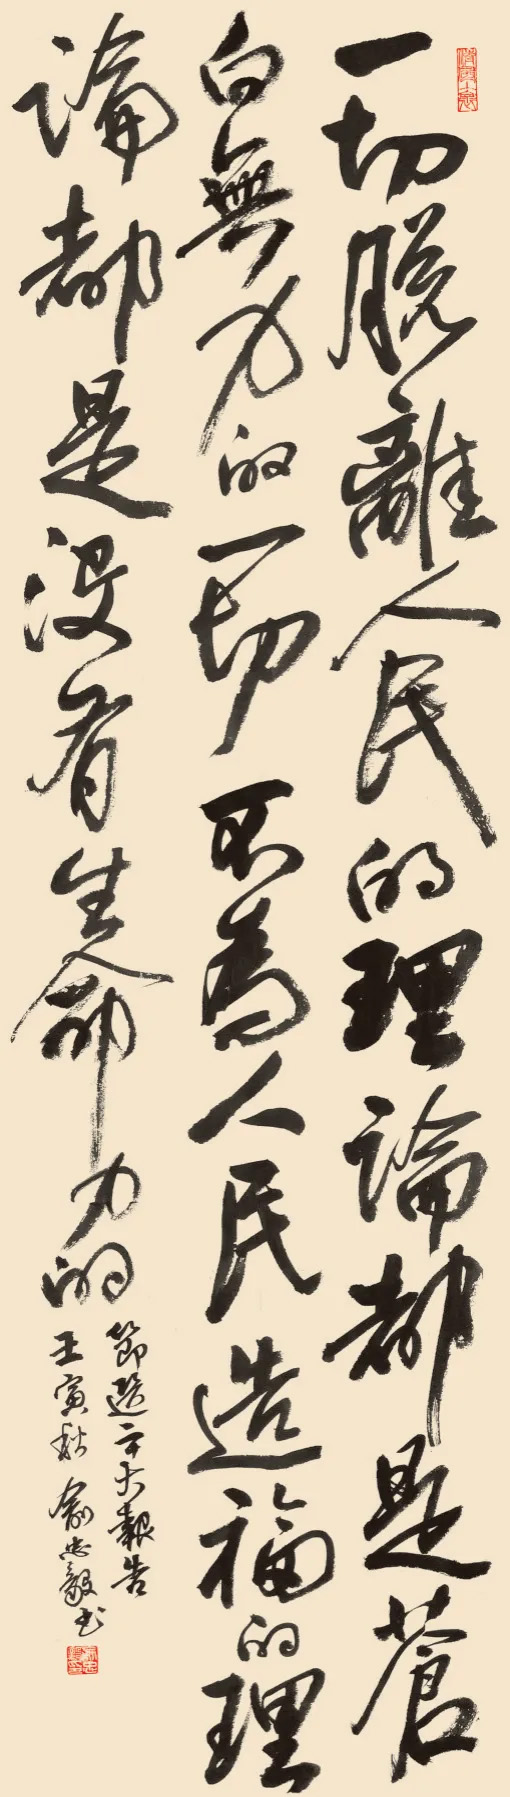 一切脱離人民的理論都是蒼
白無力的一切不為人民造福的理
論都是没有生命力的
節選二十大報告
壬寅秋 俞忠毅书